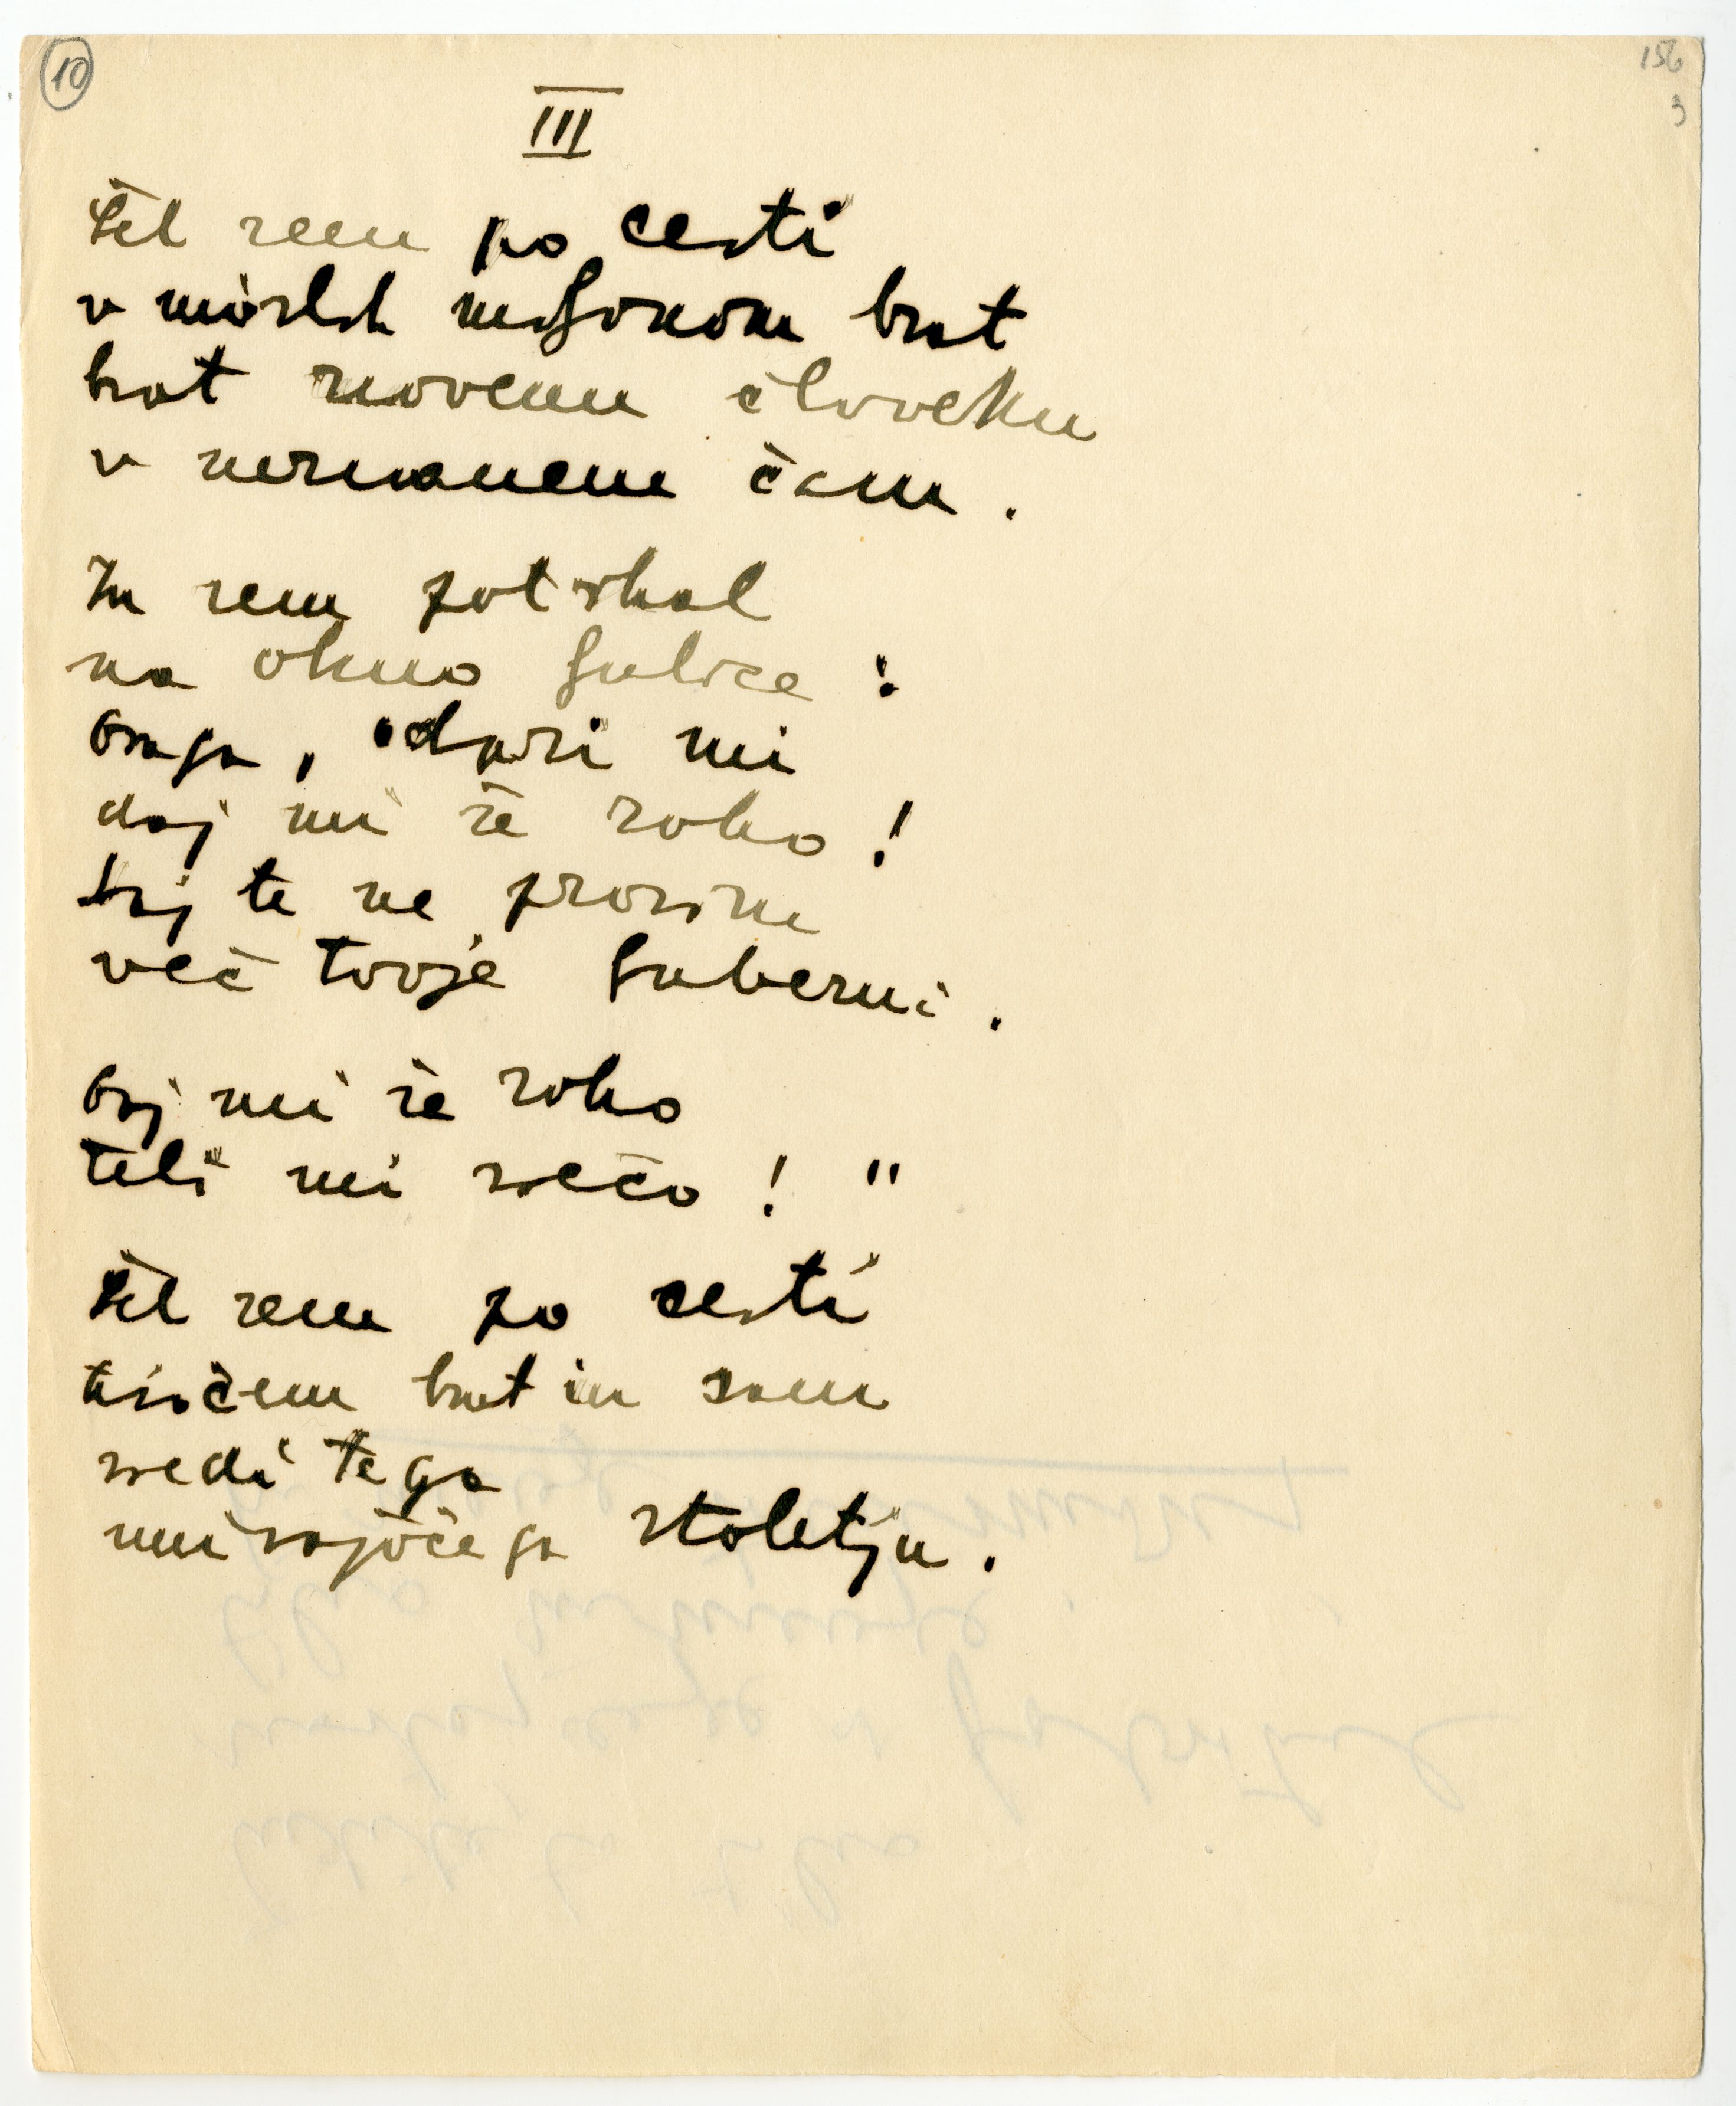 10
156
3
III
Šel sem po cesti
v mislih milijonom brat
brat novemu človeku
v neznanem času.
In sem potrkal
na okno ljubice:
Draga, odpri mi
daj mi še roko!
saj te ne prosim
več tvoje ljubezni.
Daj mi še roko
želi mi srečo! "
Šel sem po cesti
tisočem brat in sam
sredi tega
umirajočega stoletja.